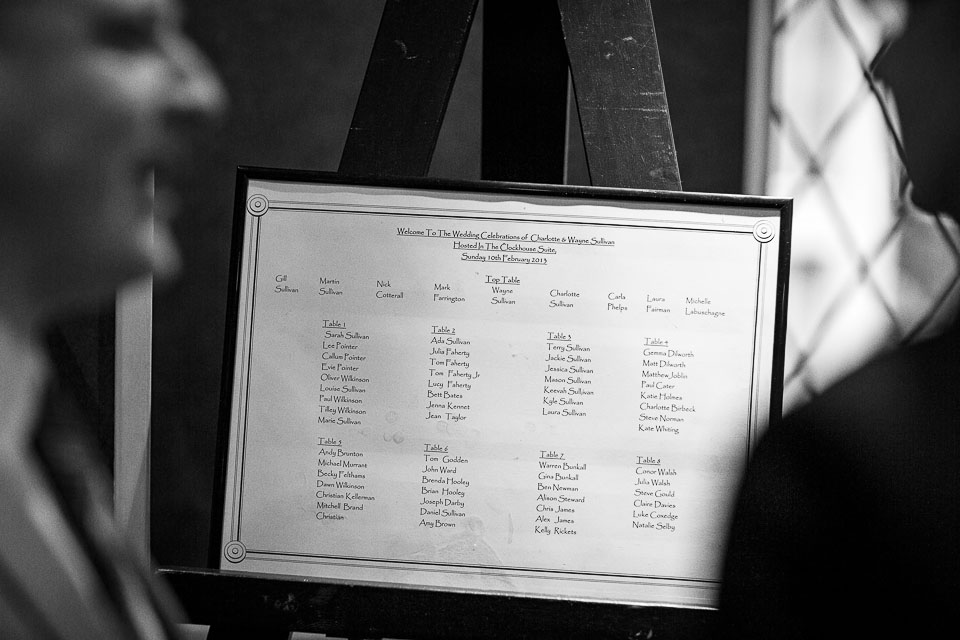 Welcome To The Wedding Celebrations of Charlotte & Wayne Sullivan
Hosted In The Clockhouse Suite,
Sunday 10th February 2013
Top Table
Gill Sullivan
Martin Sullivan
Nick Cotterall
Mark Farrington
Wayne Sullivan
Charlotte Sullivan
Carla Phelps
Laura Fairman
Michelle Labuschagne
Table 1
Sarah Sullivan
Lee Pointer
Callum Pointer
Evie Pointer
Oliver Wilkinson
Louise Sullivan
Paul Wilkinson
Tilley Wilkinson
Marie Sullivan
Table 2
Ada Sullivan
Julia Faherty
Tom Faherty
Tom Faherty Jr
Lucy Faherty
Bett Bates
Jenna Kennet
Jean Taylor
Table 3
Terry Sullivan
Jackie Sullivan
Jessica Sullivan
Mason Sullivan
Keevah Sullivan
Kyle Sullivan
Laura Sullivan
Table 4
Gemma Dilworth
Matt Dilworth
Matthew Joblin
Paul Cater
Katie Holmes
Charlotte Birbeck
Steve Norman
Kate Whiting
Table 5
Andy Brunton
Michael Murrant
Becky Felthams
Dawn Wilkinson
Christian Kellerman
Mitchell Brand
Christian
Table 6
Tom Godden
John Ward
Brenda Hooley
Brian Hooley
Joseph Darby
Daniel Sullivan
Amy Brown
Table 7
Warren Bunkall
Gina Bunkall
Ben Newman
Alison Steward
Chris James
Alex James
Kelly Rickets
Table 8
Conor Walsh
Julia Walsh
Steve Gould
Claire Davies
Luke Coxedge
Natalie Selby